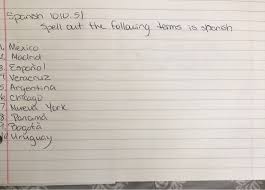 Spanish 10.10.5)
Spell out the following terms is spanish
1. Mexico
2. Madrid
3. Español
4. Veracruz
5. Argentina
6. Chicago
7. Nueva York
8. Panamá
9. Bogotá
10. Uruguay